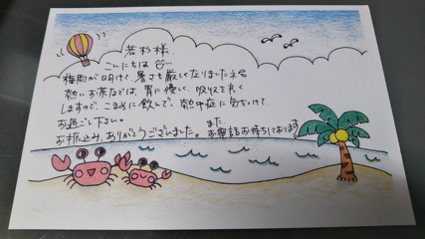 若杉様
こんにちは
梅雨が明けて、暑さも厳しくなりましたネ
熱いお茶などは、胃に優しく、吸収を良く
しますので、こまめに飲んで、熱中症に気をつけて
お過ごし下さい。
お振込み、ありがとうございました。また、
お電話お待ちしております